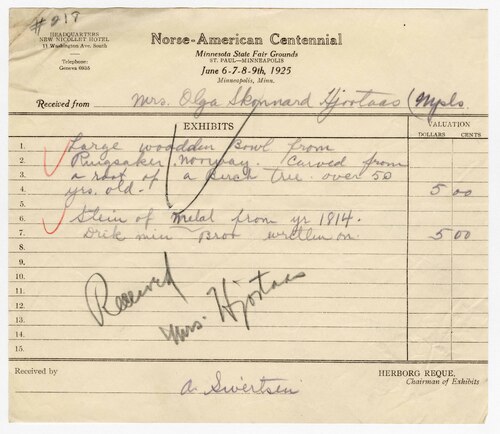 #218
HEADQUARTERS
NEW NICOLLET HOTEL
11 Washington Ave. South
Telephone:
Geneva 6935
Norse-American Centennial
Minnesota State Fair Grounds
ST. PAUL—MINNEAPOLIS
June 6-7-8-9th, 1925
Minneapolis, Minn.
Received from Mrs. Olga Skonnard Hjortaas (Mpls.
EXHIBITS VALUATION
DOLLARS CENTS
1. Large woodden Bowl from
2. Ringsaker, Norway. Carved from
3. a root of a Birch Tree over 50
4. yrs. old. 5 00
5.
6. Stein of Metal from yr 1814.
7. Drik min Bror written on 5 00
8.
9.
10.
11.
12.
13.
14.
15.
Received
Mrs. Hjortaas
Received by A. Sivertsen
HERBORG REQUE,
Chairman of Exhibits